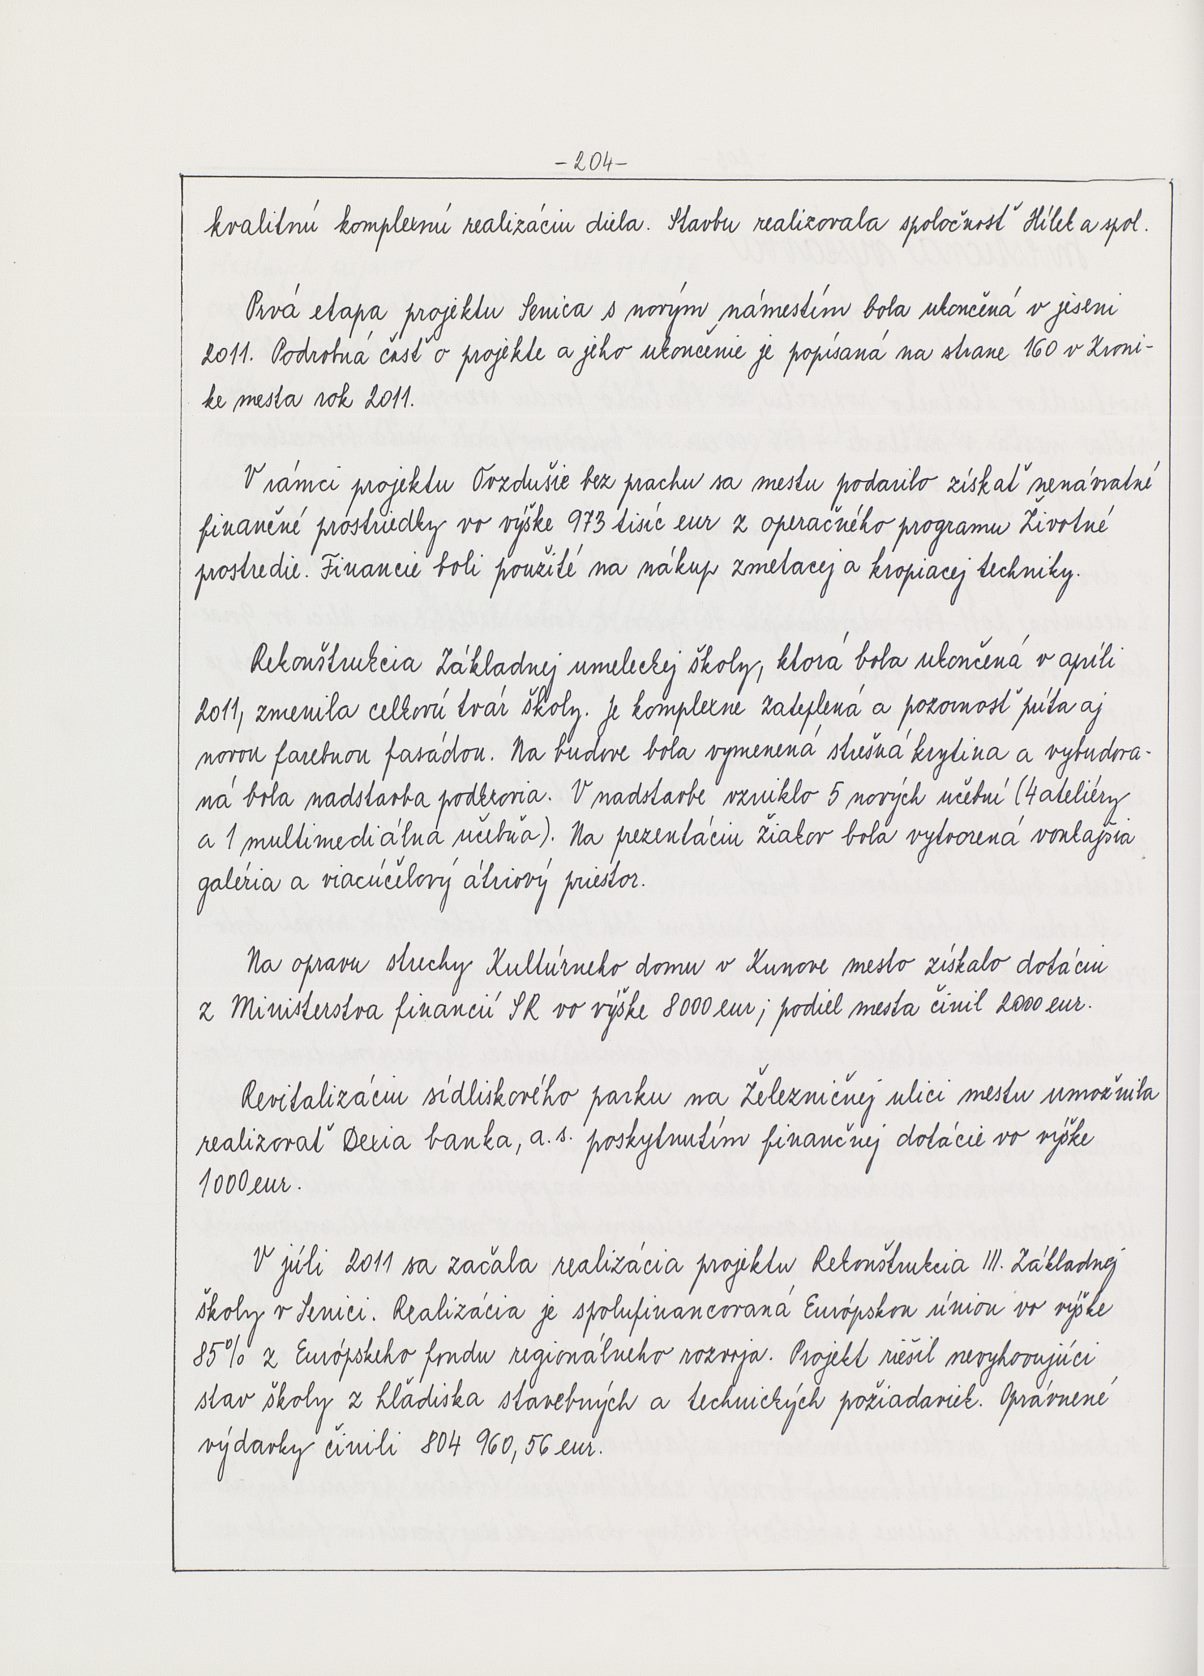 -204-
kvalitnú komplexnú realizáciu diela. Stavbu realizovala spoločnosť Hílek a spol.
Prvá etapa projektu Senica s novým námestím bola ukončená v jeseni
2011. Podrobná časť o projekte a jeho ukončenie je popísaná na strane 160 v Kroni-
ke mesta rok 2011.
V rámci projektu Ovzdušie bez prachu sa mestu podarilo získať nenávratné
finančné prostriedky vo výške 973 tisíc eur z operačného programu Životné
prostredie. Financie boli použité na nákup zmetacej a kropiacej techniky.
Rekonštrukcia Základnej umeleckej školy, ktorá bola ukončená v apríli
2011, zmenila celkovú tvár školy. Je komplexne zateplená a pozornosť púta aj
novou farebnou fasádou. Na budove bola vymenená strešná krytina a vybudova-
ná bola nadstavba podkrovia. V nadstavbe vzniklo 5 nových učební (4 ateliéry
a 1 multimediálna učebňa). Na prezentáciu žiakov bola vytvorená vonkajšia
galéria a viacúčelový átriový priestor.
Na opravu strechy Kultúrneho domu v Kunove mesto získalo dotáciu
z Ministerstva financií SR vo výške 8000 eur; podiel mesta činil 2000 eur.
Revitalizáciu sídliskového parku na Železničnej ulici mestu umožnila
realizovať Dexia banka, a.s. poskytnutím finančnej dotácie vo výške
1000 eur.
V júli 2011 sa začala realizácia projektu Rekonštrukcia III. Základnej
školy v Senici. Realizácia je spolufinancovaná Európskou úniou vo výške
85% z Európskeho fondu regionálneho rozvoja. Projekt riešil nevyhovujúci
stav školy z hľadiska stavebných a technických požiadaviek. Oprávnené
výdavky činili 804 960,56 eur.